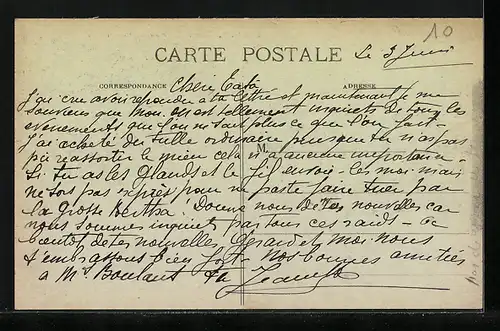 10
CARTE POSTALE Le 3 Juin
CORRESPONDANCE Chère ADRESSE
J'ai cru avoir répondu à ta lettre et maintenant je me
souviens que non. On est tellement inquiets de tous les
évènements que l'on ne sait plus ce que l'on fait -
J'ai acheté du tulle ordinaire puisque tu n'as pas
pu réassortir le mien cela n'a aucune importance
M
Si tu as les glands et le fil envoie-les moi mais
ne sors pas exprès pour ne pas te faire tuer par
la grosse Bertha! Donne nous de tes nouvelles car
nous sommes inquiets par tous ces raids - À
bientôt de tes nouvelles, Gérard et moi nous
t'embrassons bien fort - Nos bonnes amitiés
à Mr Boulant ta Jeanne